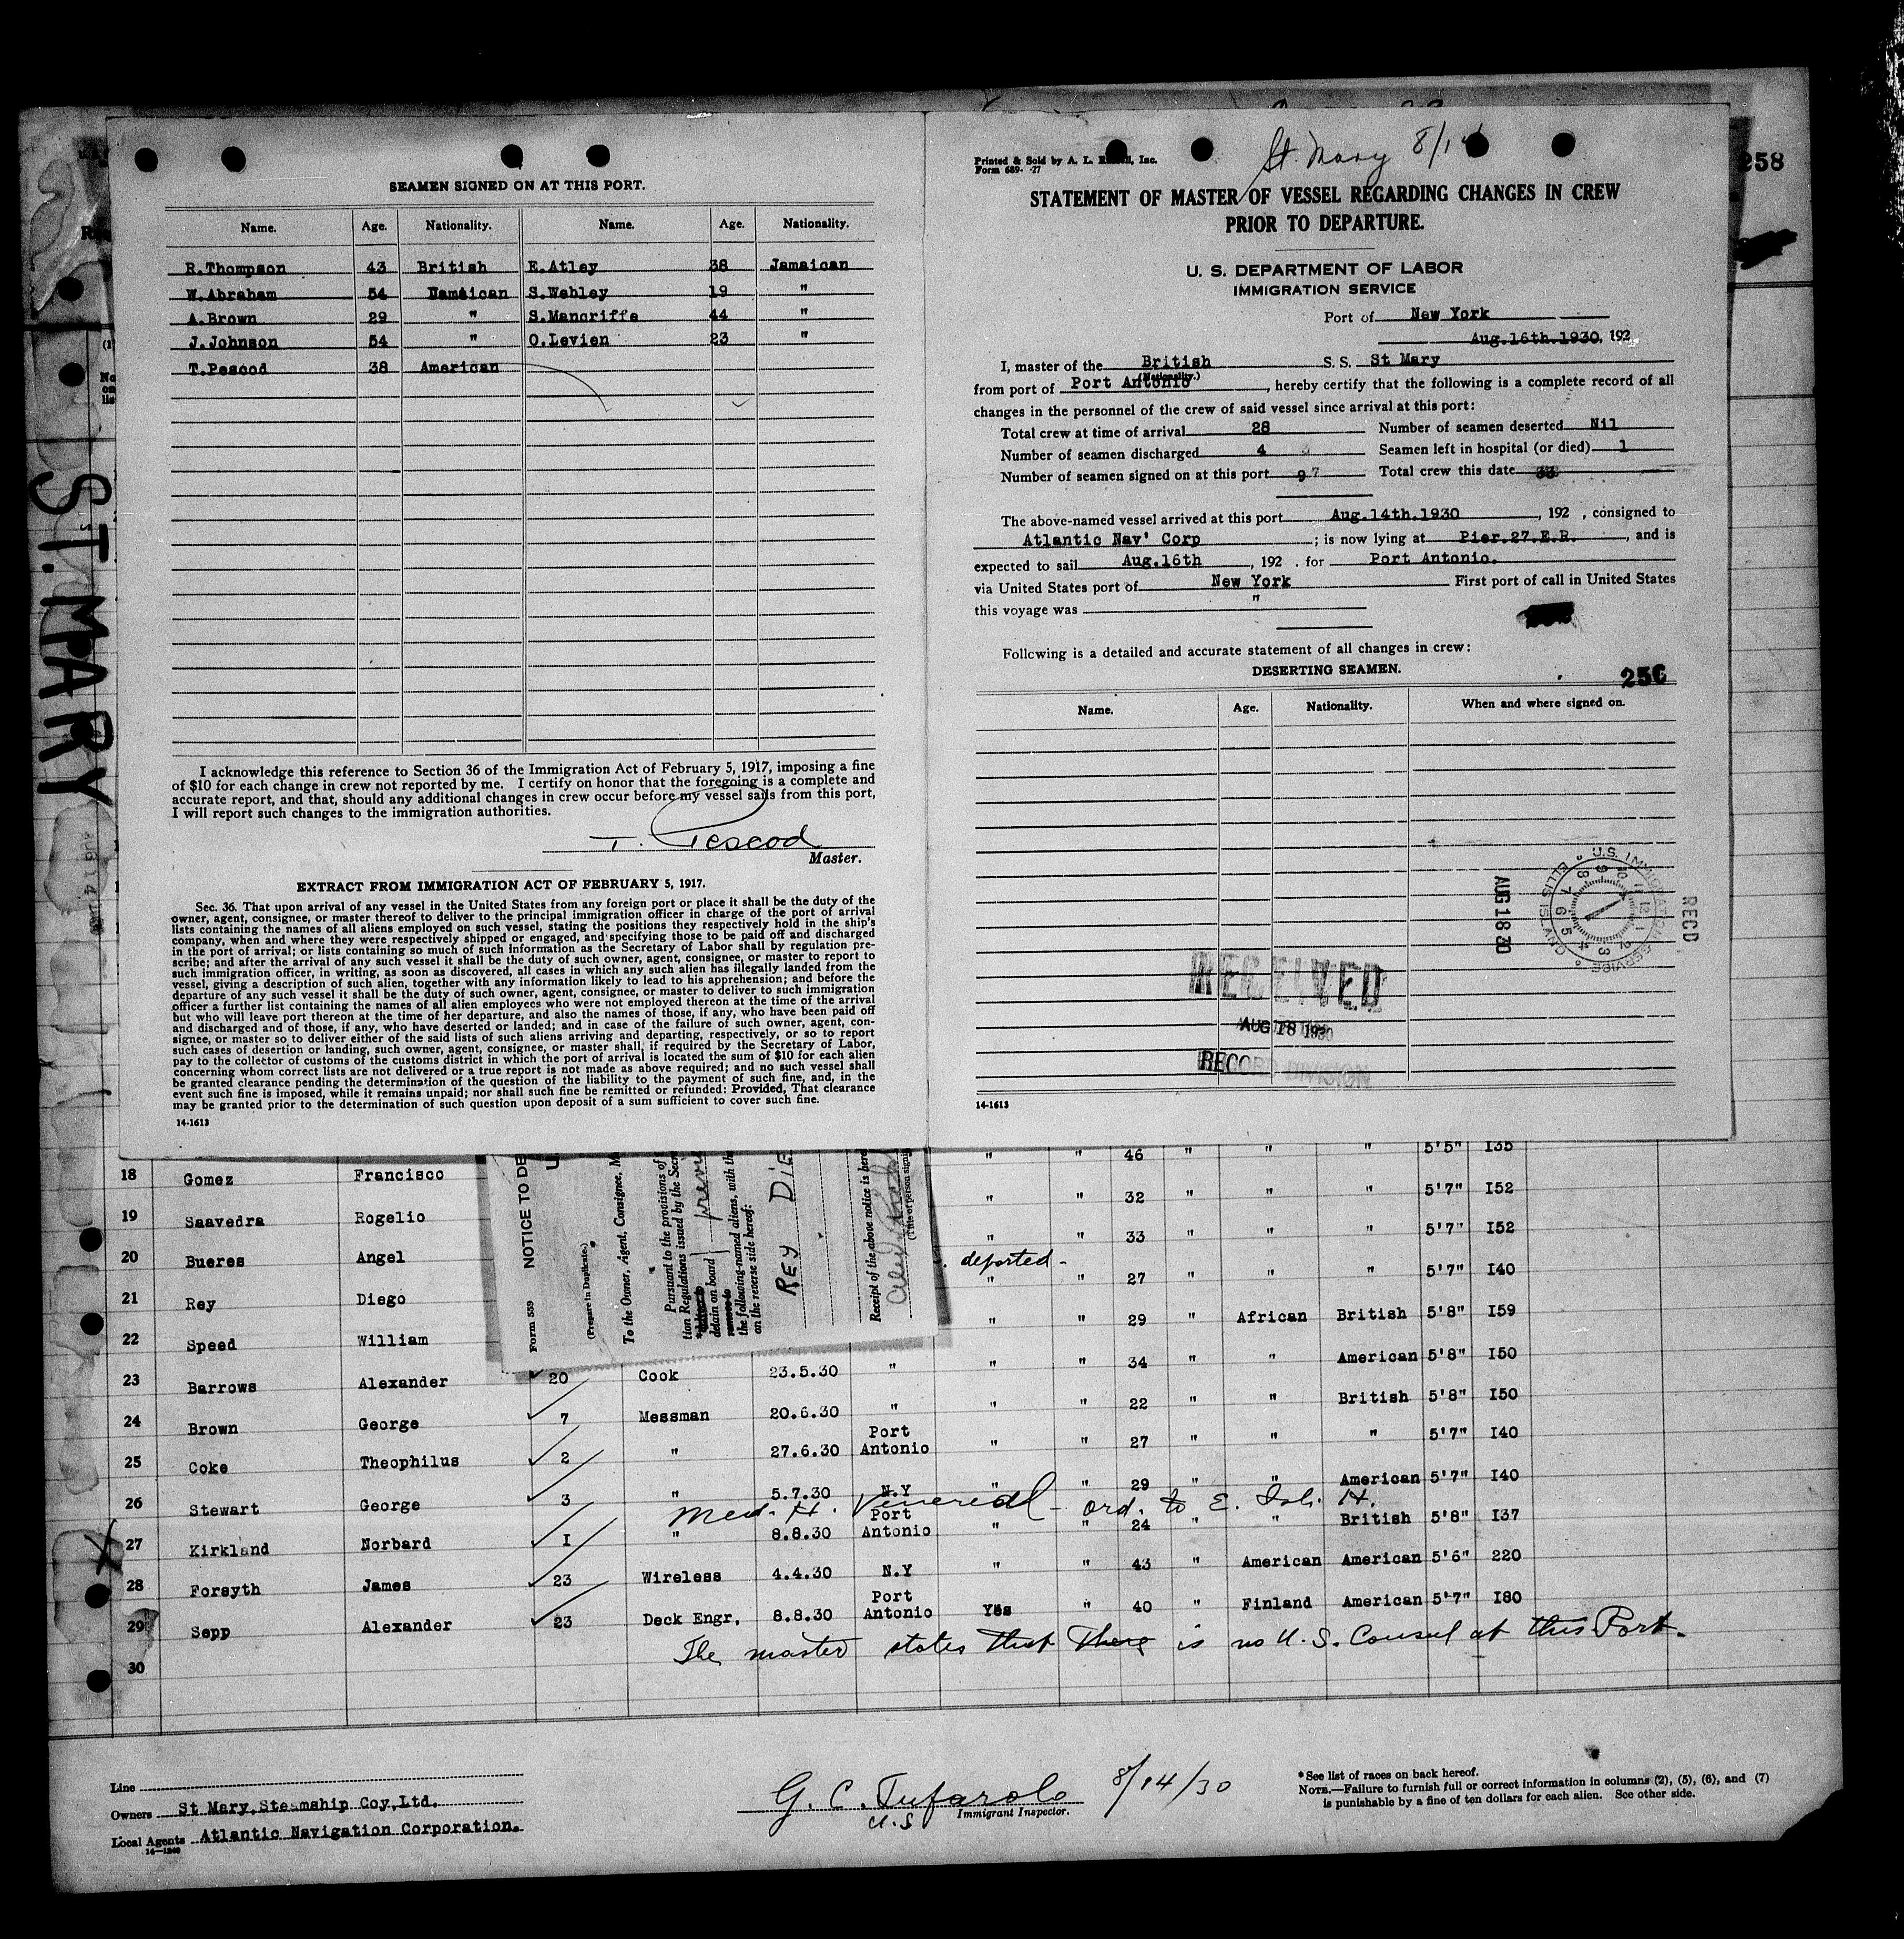 258
SEAMEN SIGNED ON AT THIS PORT.
Name. Age. Nationality. Name. Age. Nationality.
R.Thompson 43 British E.Atley 38 Jamaican
W.Abraham 54 Namaican S.Webley 19 "
A.Brown 29 " S.Mancriffe 44 "
J.Johnson 54 " O.Levien 23 "
T.Pescod 38 American
I acknowledge this reference to Section 36 of the Immigration Act of February 5, 1917, imposing a fine
of $10 for each change in crew not reported by me. I certify on honor that the foregoing is a complete and
accurate report, and that, should any additional changes in crew occur before my vessel sails from this port,
I will report such changes to the immigration authorities.
T. Pescod
Master.
EXTRACT FROM IMMIGRATION ACT OF FEBRUARY 5, 1917.
Sec. 36. That upon arrival of any vessel in the United States from any foreign port or place it shall be the duty of the
owner, agent, consignee, or master thereof to deliver to the principal immigration officer in charge of the port of arrival
lists containing the names of all aliens employed on such vessel, stating the positions they respectively hold in the ship's
company, when and where they were respectively shipped or engaged, and specifying those to be paid off and discharged
in the port of arrival; or lists containing so much of such information as the Secretary of Labor shall by regulation pre-
scribe; and after the arrival of any such vessel it shall be the duty of such owner, agent, consignee, or master to report to
such immigration officer, in writing, as soon as discovered, all cases in which any such alien has illegally landed from the
vessel, giving a description of such alien, together with any information likely to lead to his apprehension; and before the
departure of any such vessel it shall be the duty of such owner, agent, consignee, or master to deliver to such immigration
officer a further list containing the names of all alien employees who were not employed thereon at the time of the arrival
but who will leave port thereon at the time of her departure, and also the names of those, if any, who have been paid off
and discharged and of those, if any, who have deserted or landed; and in case of the failure of such owner, agent, con-
signee, or master so to deliver either of the said lists of such aliens arriving and departing, respectively, or so to report
such cases of desertion or landing, such owner, agent, consignee, or master shall, if required by the Secretary of Labor,
pay to the collector of customs of the customs district in which the port of arrival is located the sum of $10 for each alien
concerning whom correct lists are not delivered or a true report is not made as above required; and no such vessel shall
be granted clearance pending the determination of the question of the liability to the payment of such fine, and, in the
event such fine is imposed, while it remains unpaid; nor shall such fine be remitted or refunded: Provided, That clearance
may be granted prior to the determination of such question upon deposit of a sum sufficient to cover such fine.
14-1613
St. Mary 8/14
Printed & Sold by A. L. Inc.
Form 689- -27
STATEMENT OF MASTER OF VESSEL REGARDING CHANGES IN CREW
PRIOR TO DEPARTURE.
U. S. DEPARTMENT OF LABOR
IMMIGRATION SERVICE
Port of New York
Aug.16th.1930, 192
I, master of the British S. S. St Mary
(Nationality.)
from port of Port Antonio, hereby certify that the following is a complete record of all
changes in the personnel of the crew of said vessel since arrival at this port:
Total crew at time of arrival 28 Number of seamen deserted Nil
Number of seamen discharged 4 Seamen left in hospital (or died) 1
Number of seamen signed on at this port 9 7 Total crew this date 33
The above-named vessel arrived at this port Aug.14th.1930, 192 , consigned to
Atlantic Nav' Corp ; is now lying at Pier.27.E.R. , and is
expected to sail Aug.16th , 192 . for Port Antonio.
via United States port of New York First port of call in United States
this voyage was "
Following is a detailed and accurate statement of all changes in crew:
DESERTING SEAMEN.
256
Name. Age. Nationality. When and where signed on.
U.S. IMMIGRATION SERVICE ELLIS ISLAND
RECD
AUG 18 30
RECEIVED
AUG 18 1930
RECORD DIVISION
14-1613
ST. MARY
NOTICE TO DE
Form 539
(Prepare in Duplicate.)
To the Owner, Agent, Consignee, M
Pursuant to the provisions of
tion Regulations issued by the Secr
detain on board
the following-named aliens, with th
on the reverse side hereof:
REY DIE
Receipt of the above notice is here
(Title of person signi
18 Gomez Francisco " " 46 " " " 5'5" I35
19 Saavedra Rogelio " " 32 " " " 5'7" I52
20 Bueres Angel " " 33 " " " 5'7" I52
deported -
21 Rey Diego " " 27 " " " 5'7" I40
22 Speed William " " 29 " African British 5'8" I59
23 Barrows Alexander 20 Cook 23.5.30 " " " 34 " " American 5'8" I50
24 Brown George 7 Messman 20.6.30 " " " 22 " " British 5'8" I50
25 Coke Theophilus 2 " 27.6.30 Port Antonio " " 27 " " " 5'7" I40
26 Stewart George 3 " 5.7.30 N.Y " " 29 " " American 5'7" I40
Med. H. Venereal - ord. to E. Isl. H.
27 Kirkland Norbard I " 8.8.30 Port Antonio " " 24 " " British 5'8" I37
28 Forsyth James 23 Wireless 4.4.30 N.Y " " 43 " American American 5'6" 220
29 Sepp Alexander 23 Deck Engr, 8.8.30 Port Antonio Yes " 40 " Finland American 5'7" I80
The master states that there is no U.S. Consul at this Port.
30
Line
Owners St Mary.Steamship Coy,Ltd.
Local Agents Atlantic Navigation Corporation.
14-1240
G. C. Tufarolo 8/14/30
U.S Immigrant Inspector.
*See list of races on back hereof.
NOTE.—Failure to furnish full or correct information in columns (2), (5), (6), and (7)
is punishable by a fine of ten dollars for each alien. See other side.